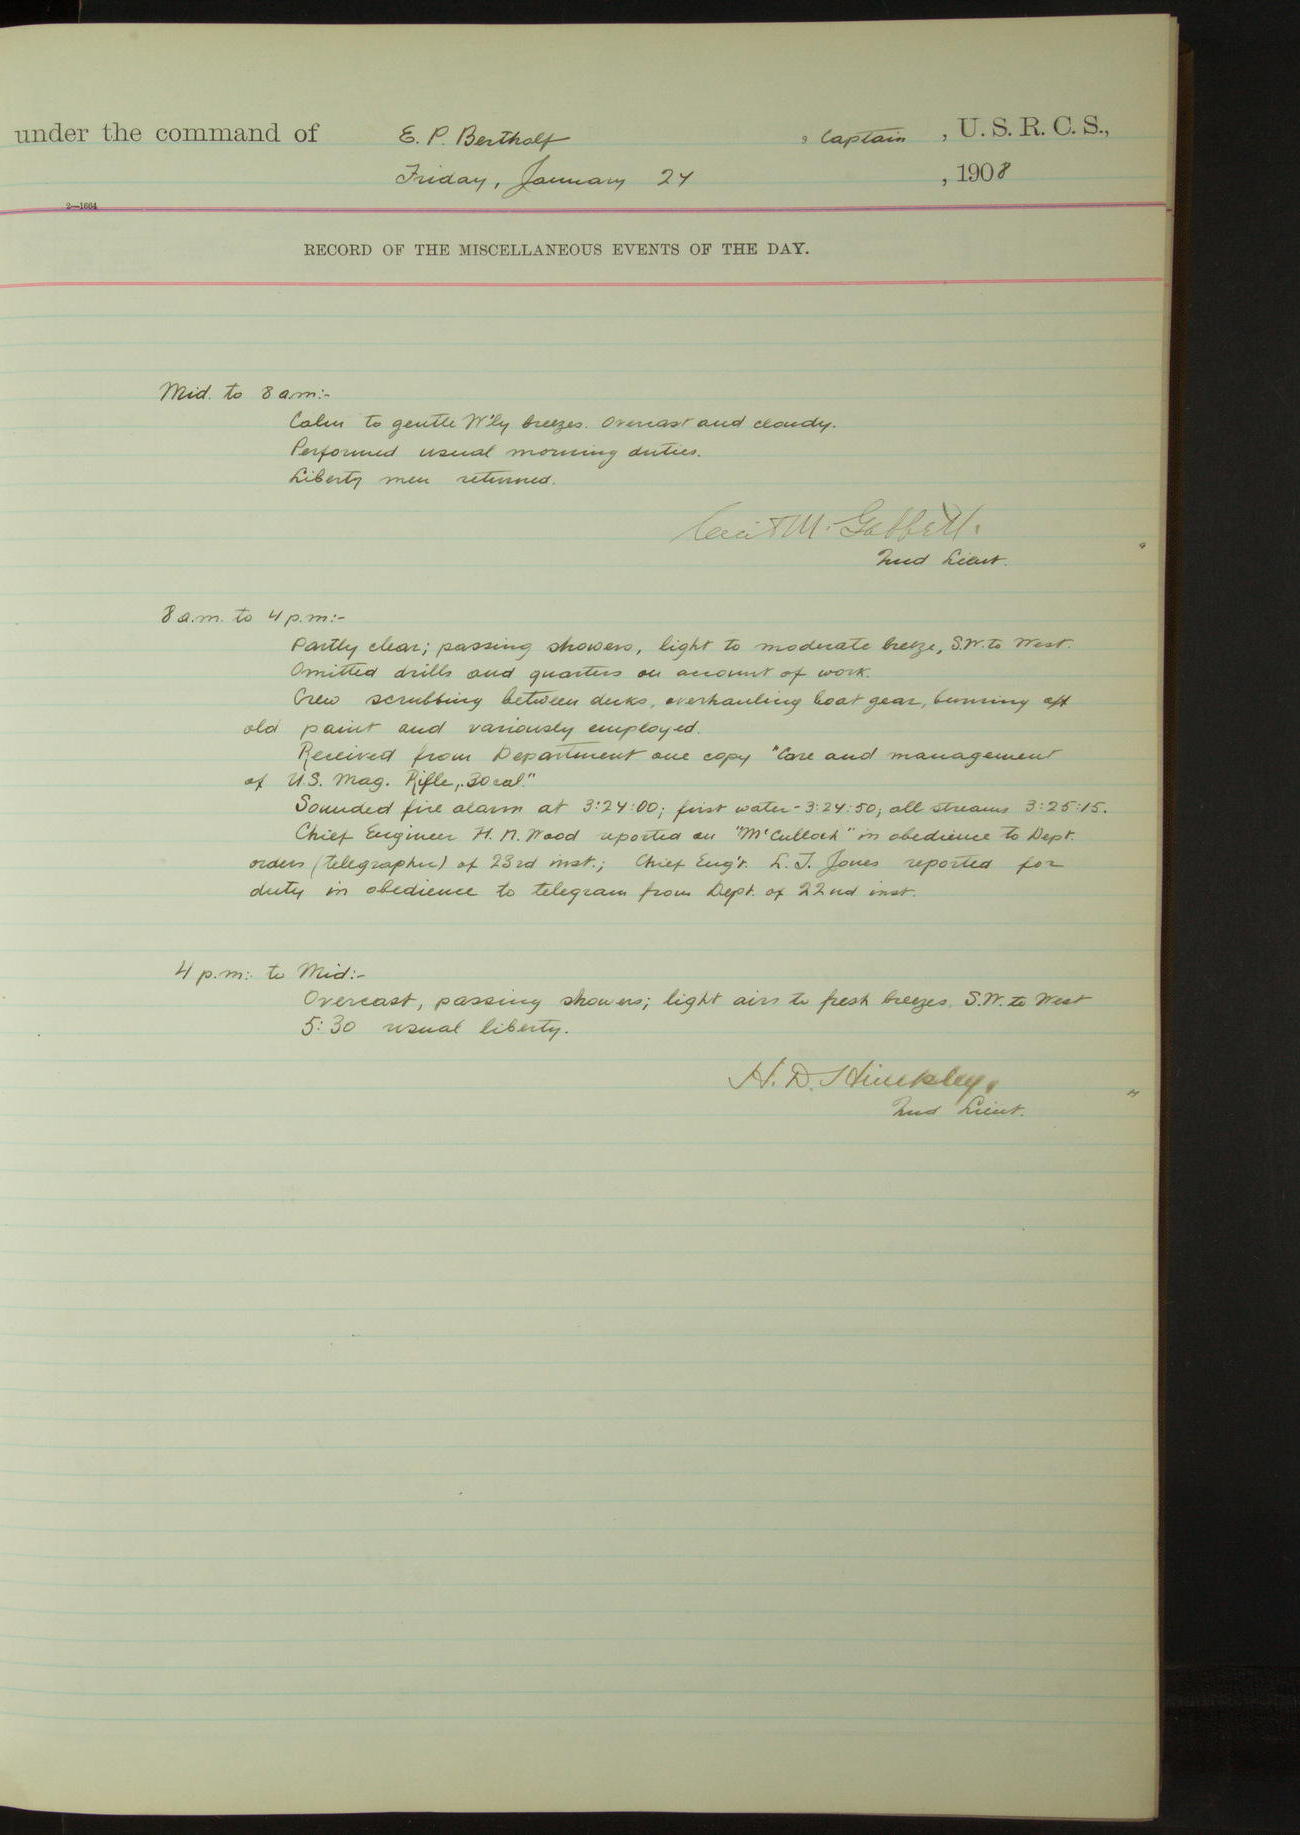 under the command of E. P. Bertholf, Captain, U. S. R. C. S.,
Friday, January 24, 1908
2—1664
RECORD OF THE MISCELLANEOUS EVENTS OF THE DAY.
Mid. to 8 a.m:-
Calm to gentle W'ly breezes. Overcast and cloudy.
Performed usual morning duties.
Liberty men returned.
M. Gabbett.
2nd Lieut.
8 a.m. to 4 p.m:-
Partly clear; passing showers, light to moderate breeze, S.W. to West.
Omitted drills and quarters on account of work.
Crew scrubbing between decks, overhauling boat gear, burning off
old paint and variously employed.
Received from Department one copy "Care and management
of U.S. Mag. Rifle, .30 cal."
Sounded fire alarm at 3:24:00; first water - 3:24:50; all streams 3:25:15.
Chief Engineer H. N. Wood reported on "McCulloch" in obedience to Dept.
orders (telegraphic) of 23rd inst.; Chief Eng'r. L. T. Jones reported for
duty in obedience to telegram from Dept. of 22nd inst.
4 p.m: to Mid:-
Overcast, passing showers; light airs to fresh breezes, S.W. to West
5:30 usual liberty.
H. D. Hinckley.
2nd Lieut.